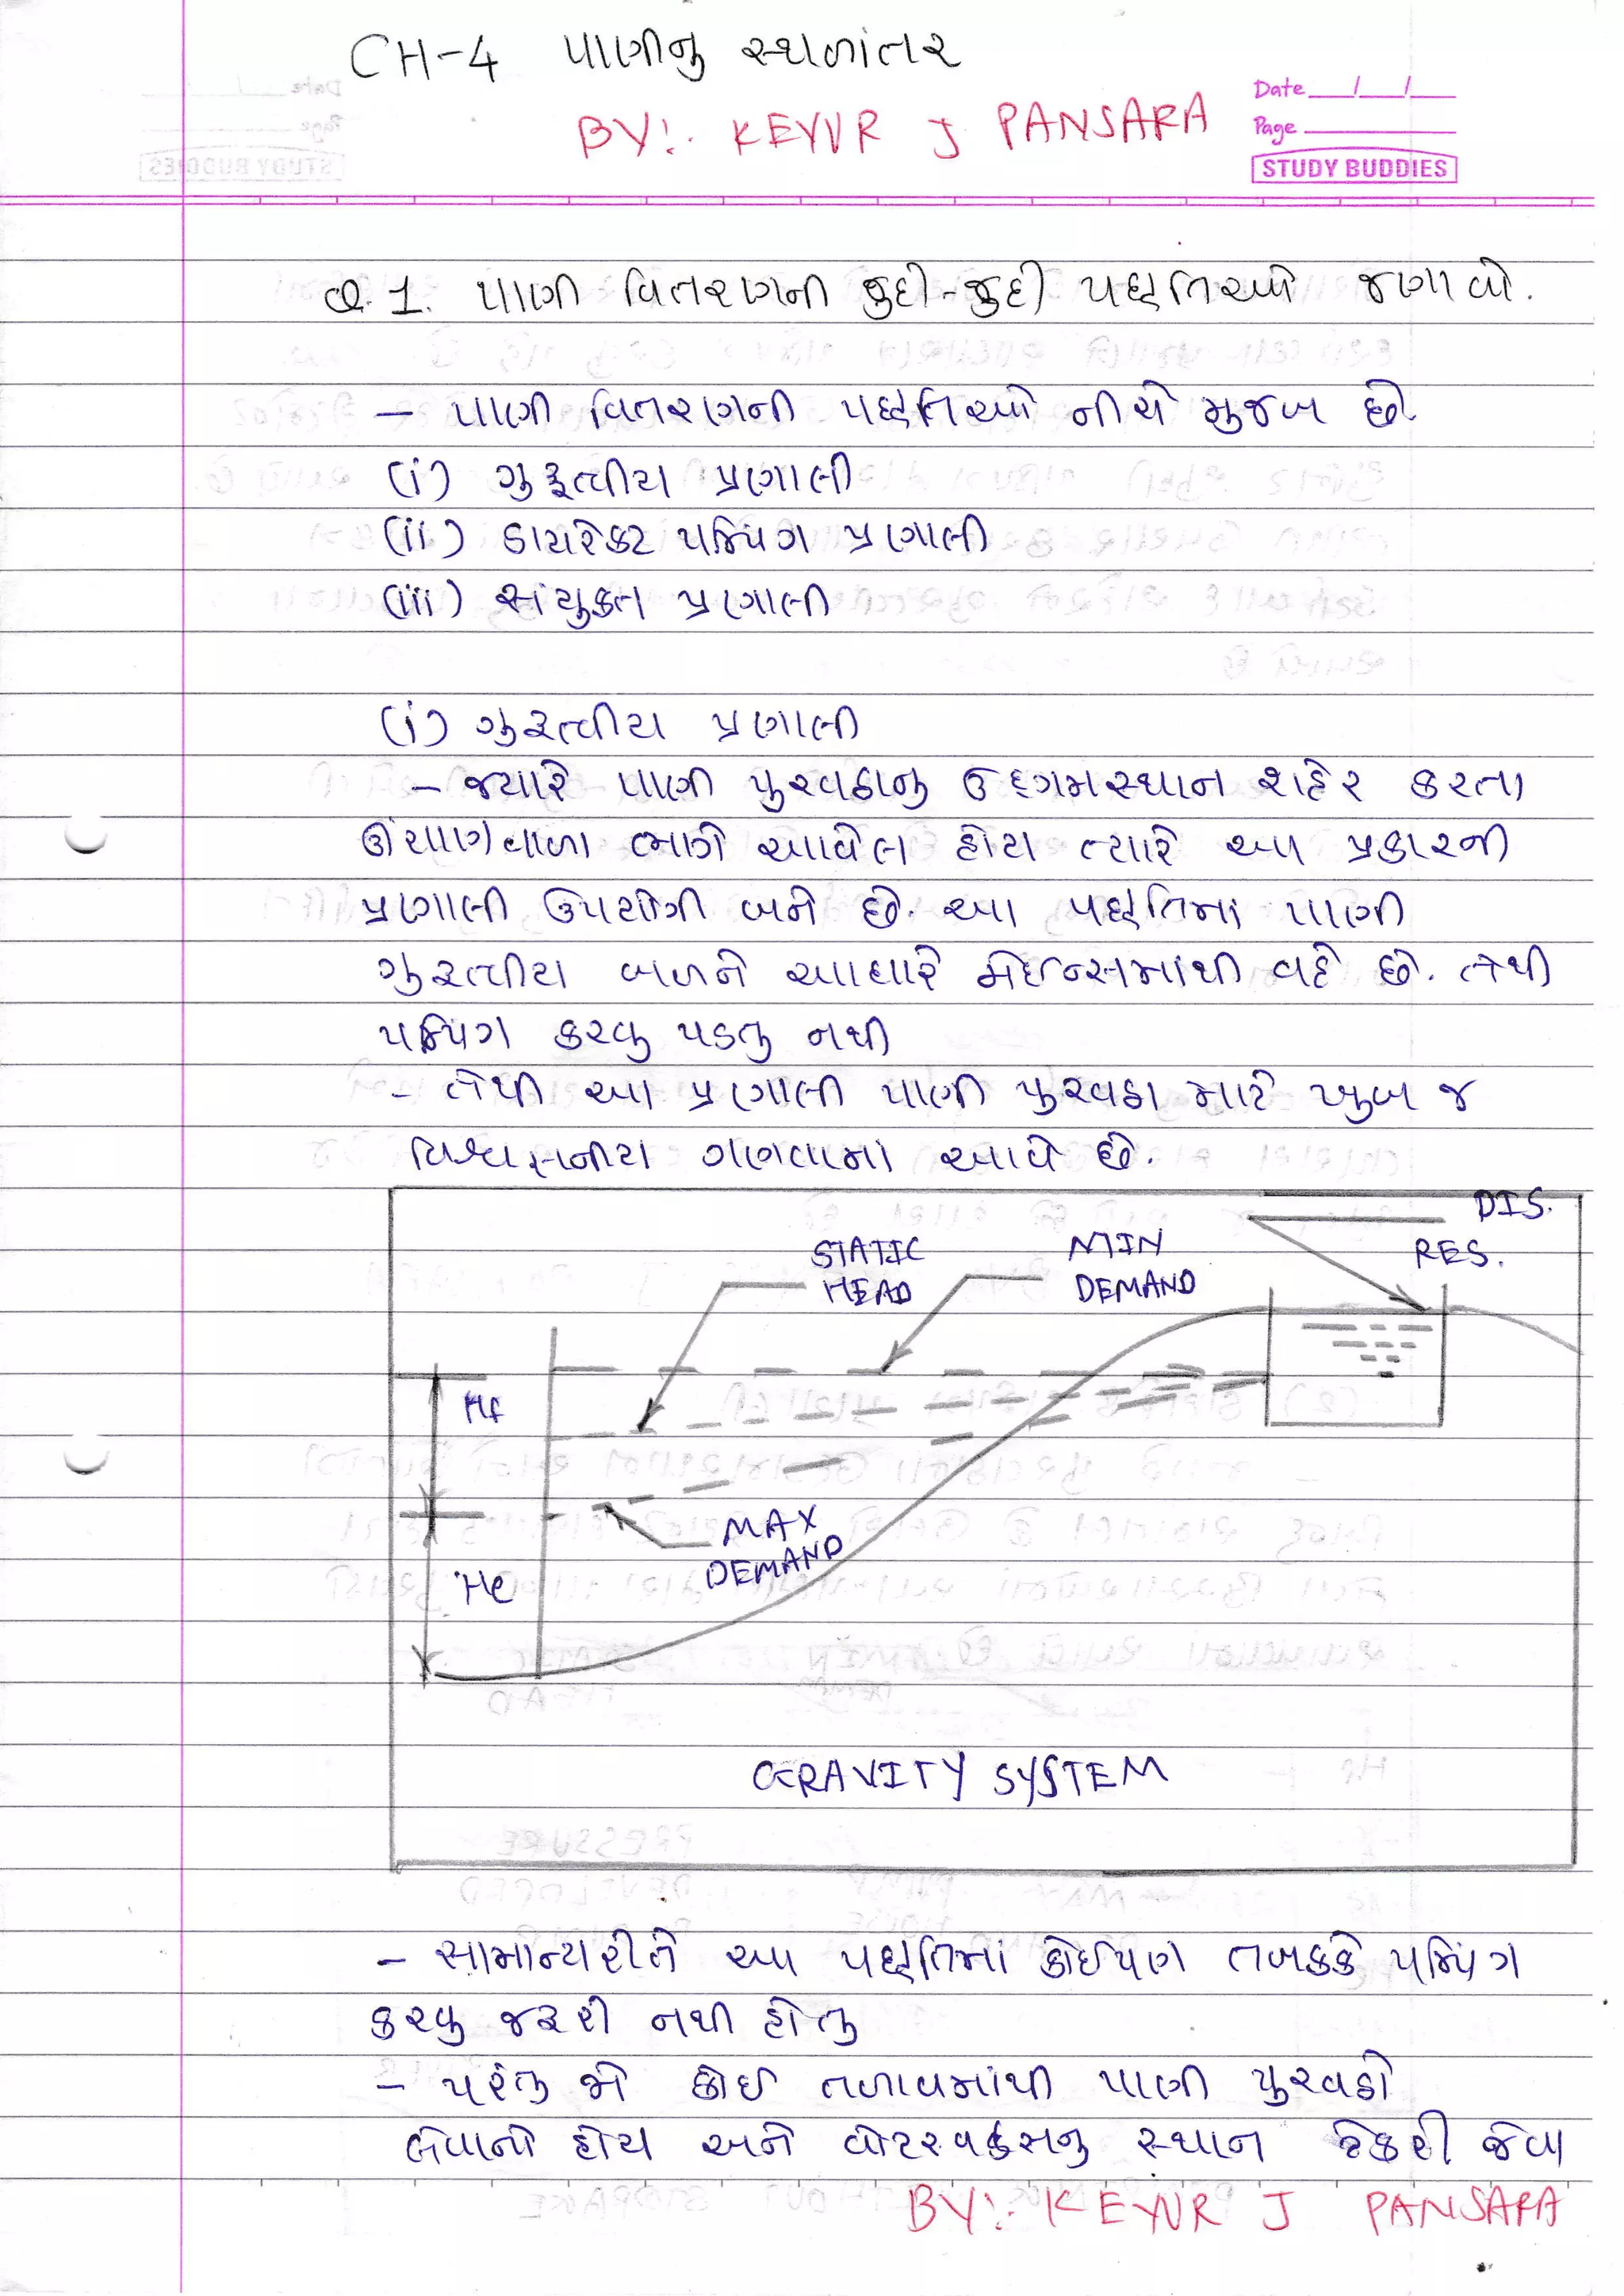 CH-4 પાણીનુ સ્થળાંતર
BY:- KEYUR J PANSARA
Date / /
Page
STUDY BUDDIES
Q.1. પાણી વિતરણની જુદી-જુદી પધ્ધતિઓ જણાવો.
- પાણી વિતરણની પધ્ધતિઓ નીચે મુજબ છે.
(i) ગુરૂત્વીય પ્રણાલી
(ii) ડાયરેકટ પમ્પિંગ પ્રણાલી
(iii) સંયુક્ત પ્રણાલી
(i) ગુરૂત્વીય પ્રણાલી
- જ્યારે પાણી પુરવઠાનુ ઉદ્ગમસ્થાન શહેર કરતા
ઊંચાણવાળા ભાગે આવેલ હોય ત્યારે આ પ્રકારની
પ્રણાલી ઉપયોગી બને છે. આ પધ્ધતિમાં પાણી
ગુરૂત્વીય બળને આધારે મેઈન્સમાંથી વહે છે. તેથી
પમ્પિંગ કરવુ પડતુ નથી
- તેથી આ પ્રણાલી પાણી પુરવઠા માટે ખુબ જ
વિશ્વસનીય ગણવામાં આવે છે.
DIS.
RES.
STATIC
HEAD
MIN
DEMAND
Hf
MAX
DEMAND
He
GRAVITY SYSTEM
- સામાન્ય રીતે આ પધ્ધતિમાં કોઈપણ તબક્કે પમ્પિંગ
કરવુ જરૂરી નથી હોતુ
- પરંતુ જો કોઈ તળાવમાંથી પાણી પુરવઠો
લેવાનો હોય અને વોટરવર્કસનુ સ્થાન ટેકરી જેવા
BY:- KEYUR J PANSARA